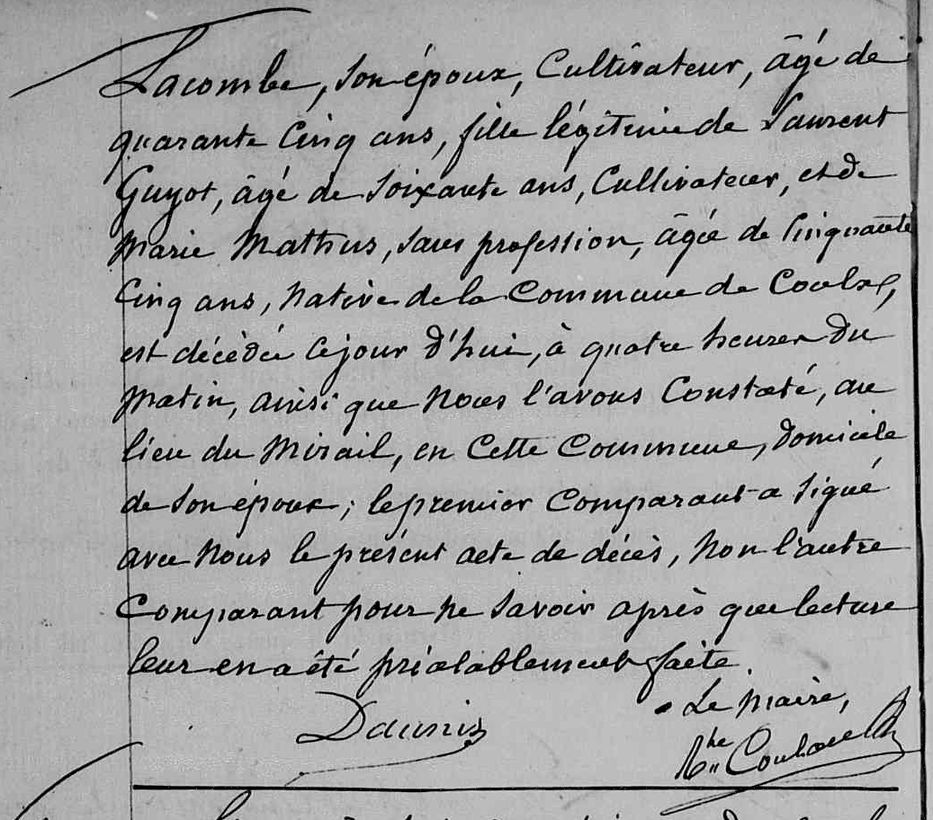 Lacombe, son époux, Cultivateur, âgé de
quarante Cinq ans, fille légitime de Laurent
Guyot, âgé de soixante ans, Cultivateur, et de
Marie Mathus, sans profession, âgée de Cinquante
Cinq ans, native de la Commune de Coulx,
est décédée ce jour d'hui, à quatre heures du
matin, ainsi que Nous l'avons Constaté, au
lieu du Mirail, en Cette Commune, domicile
de son époux; le premier Comparant a signé
avec Nous le présent acte de décès, Non l'autre
Comparant pour ne savoir après que lecture
leur en a été préalablement faite.
Daunis
Le Maire,